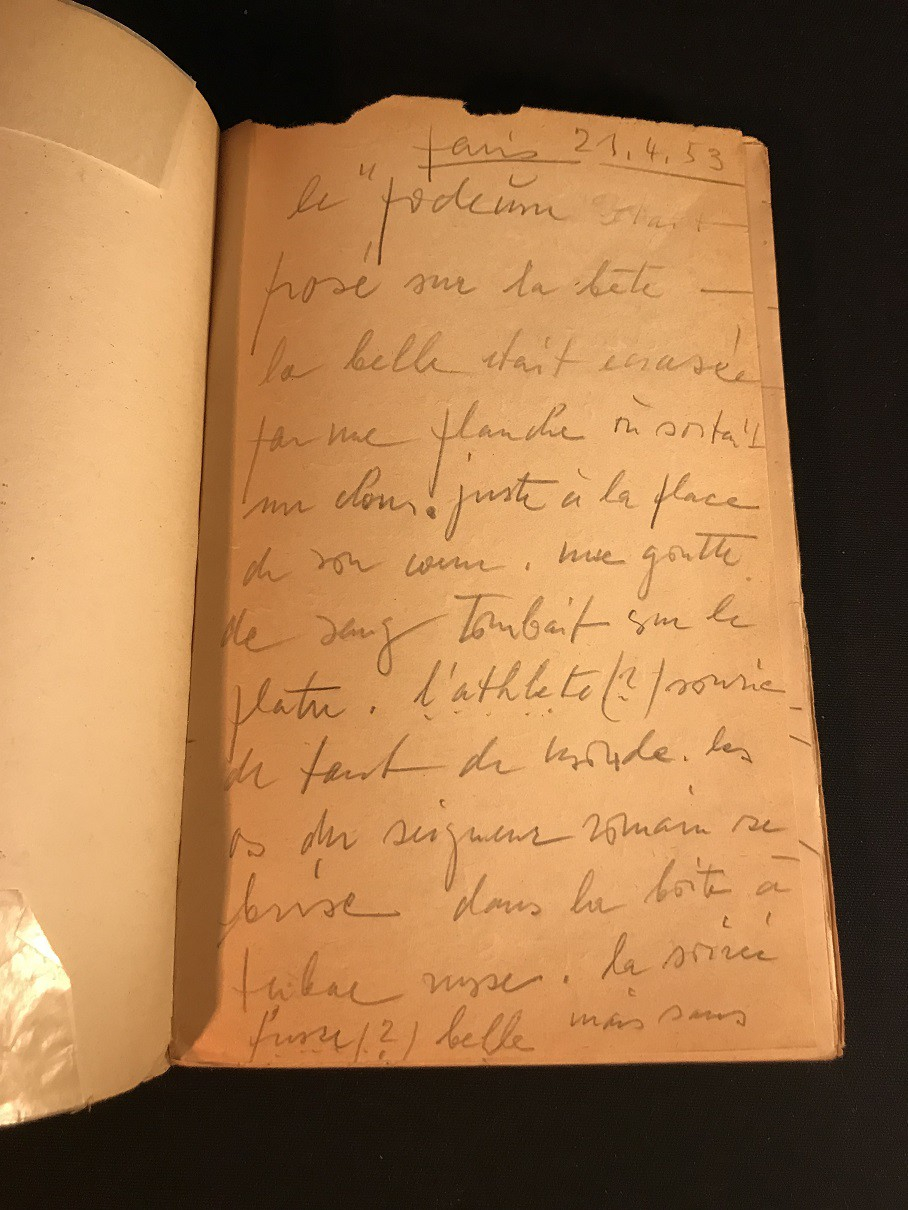 Paris 21.4.53
le " podeum était
posé sur la bète —
la belle était ecrasée
par une planche où sortait
un clous. juste à la place
de son coeur. une goutte
de sang tombait sur le
platre. l'athlete (?) sourie
de tant de monde. les
os du seigneur romain se
brise dans la boite à
tabac russe. la soirée
fusse (?) belle mais sans